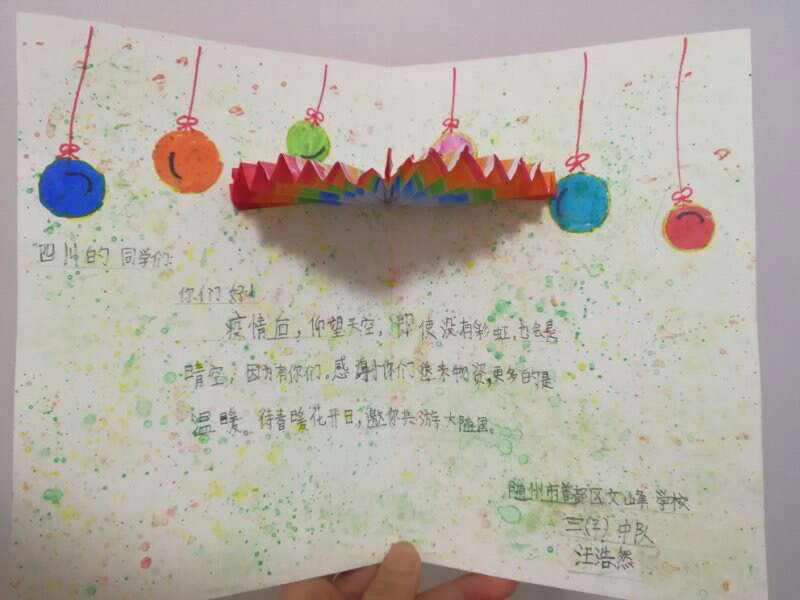 四川的同学们:
你们好!
疫情后,仰望天空,即使没有彩虹,也会是
晴空,因为有你们。感谢你们送来物资,更多的是
温暖。待春暖花开日,邀你共游大随国。
随州市曾都区文峰学校
三(2)中队
汪浩然